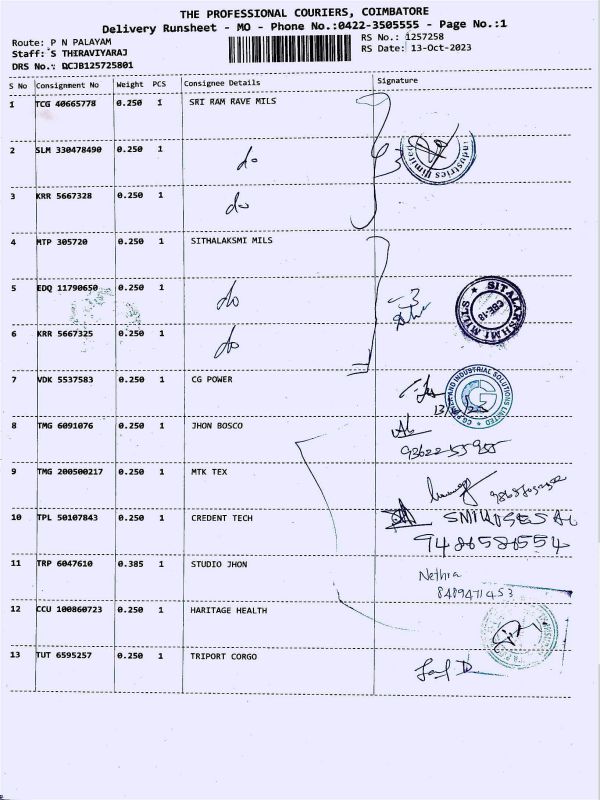 THE PROFESSIONAL COURIERS, COIMBATORE
Delivery Runsheet - MO - Phone No.:0422-3505555 - Page No.:1
Route: P N PALAYAM
RS No.: 1257258
Staff: S THIRAVIYARAJ
RS Date: 13-Oct-2023
DRS No.: DCJB125725801
S No Consignment No Weight PCS Consignee Details Signature
1 TCG 40665778 0.250 1 SRI RAM RAVE MILS
2 SLM 330478490 0.250 1 do
3 KRR 5667328 0.250 1 do
4 MTP 305720 0.250 1 SITHALAKSMI MILS
5 EDQ 11790650 0.250 1 do
SITALAKSHMI MILLS
CBE-18
6 KRR 5667325 0.250 1 do
7 VDK 5537583 0.250 1 CG POWER
CG POWER AND INDUSTRIAL SOLUTIONS LIMITED
CG
8 TMG 6091076 0.250 1 JHON BOSCO
9 TMG 200500217 0.250 1 MTK TEX
10 TPL 50107843 0.250 1 CREDENT TECH
9486586554
11 TRP 6047610 0.385 1 STUDIO JHON Nethra
8489471453
12 CCU 100860723 0.250 1 HARITAGE HEALTH
13 TUT 6595257 0.250 1 TRIPORT CORGO